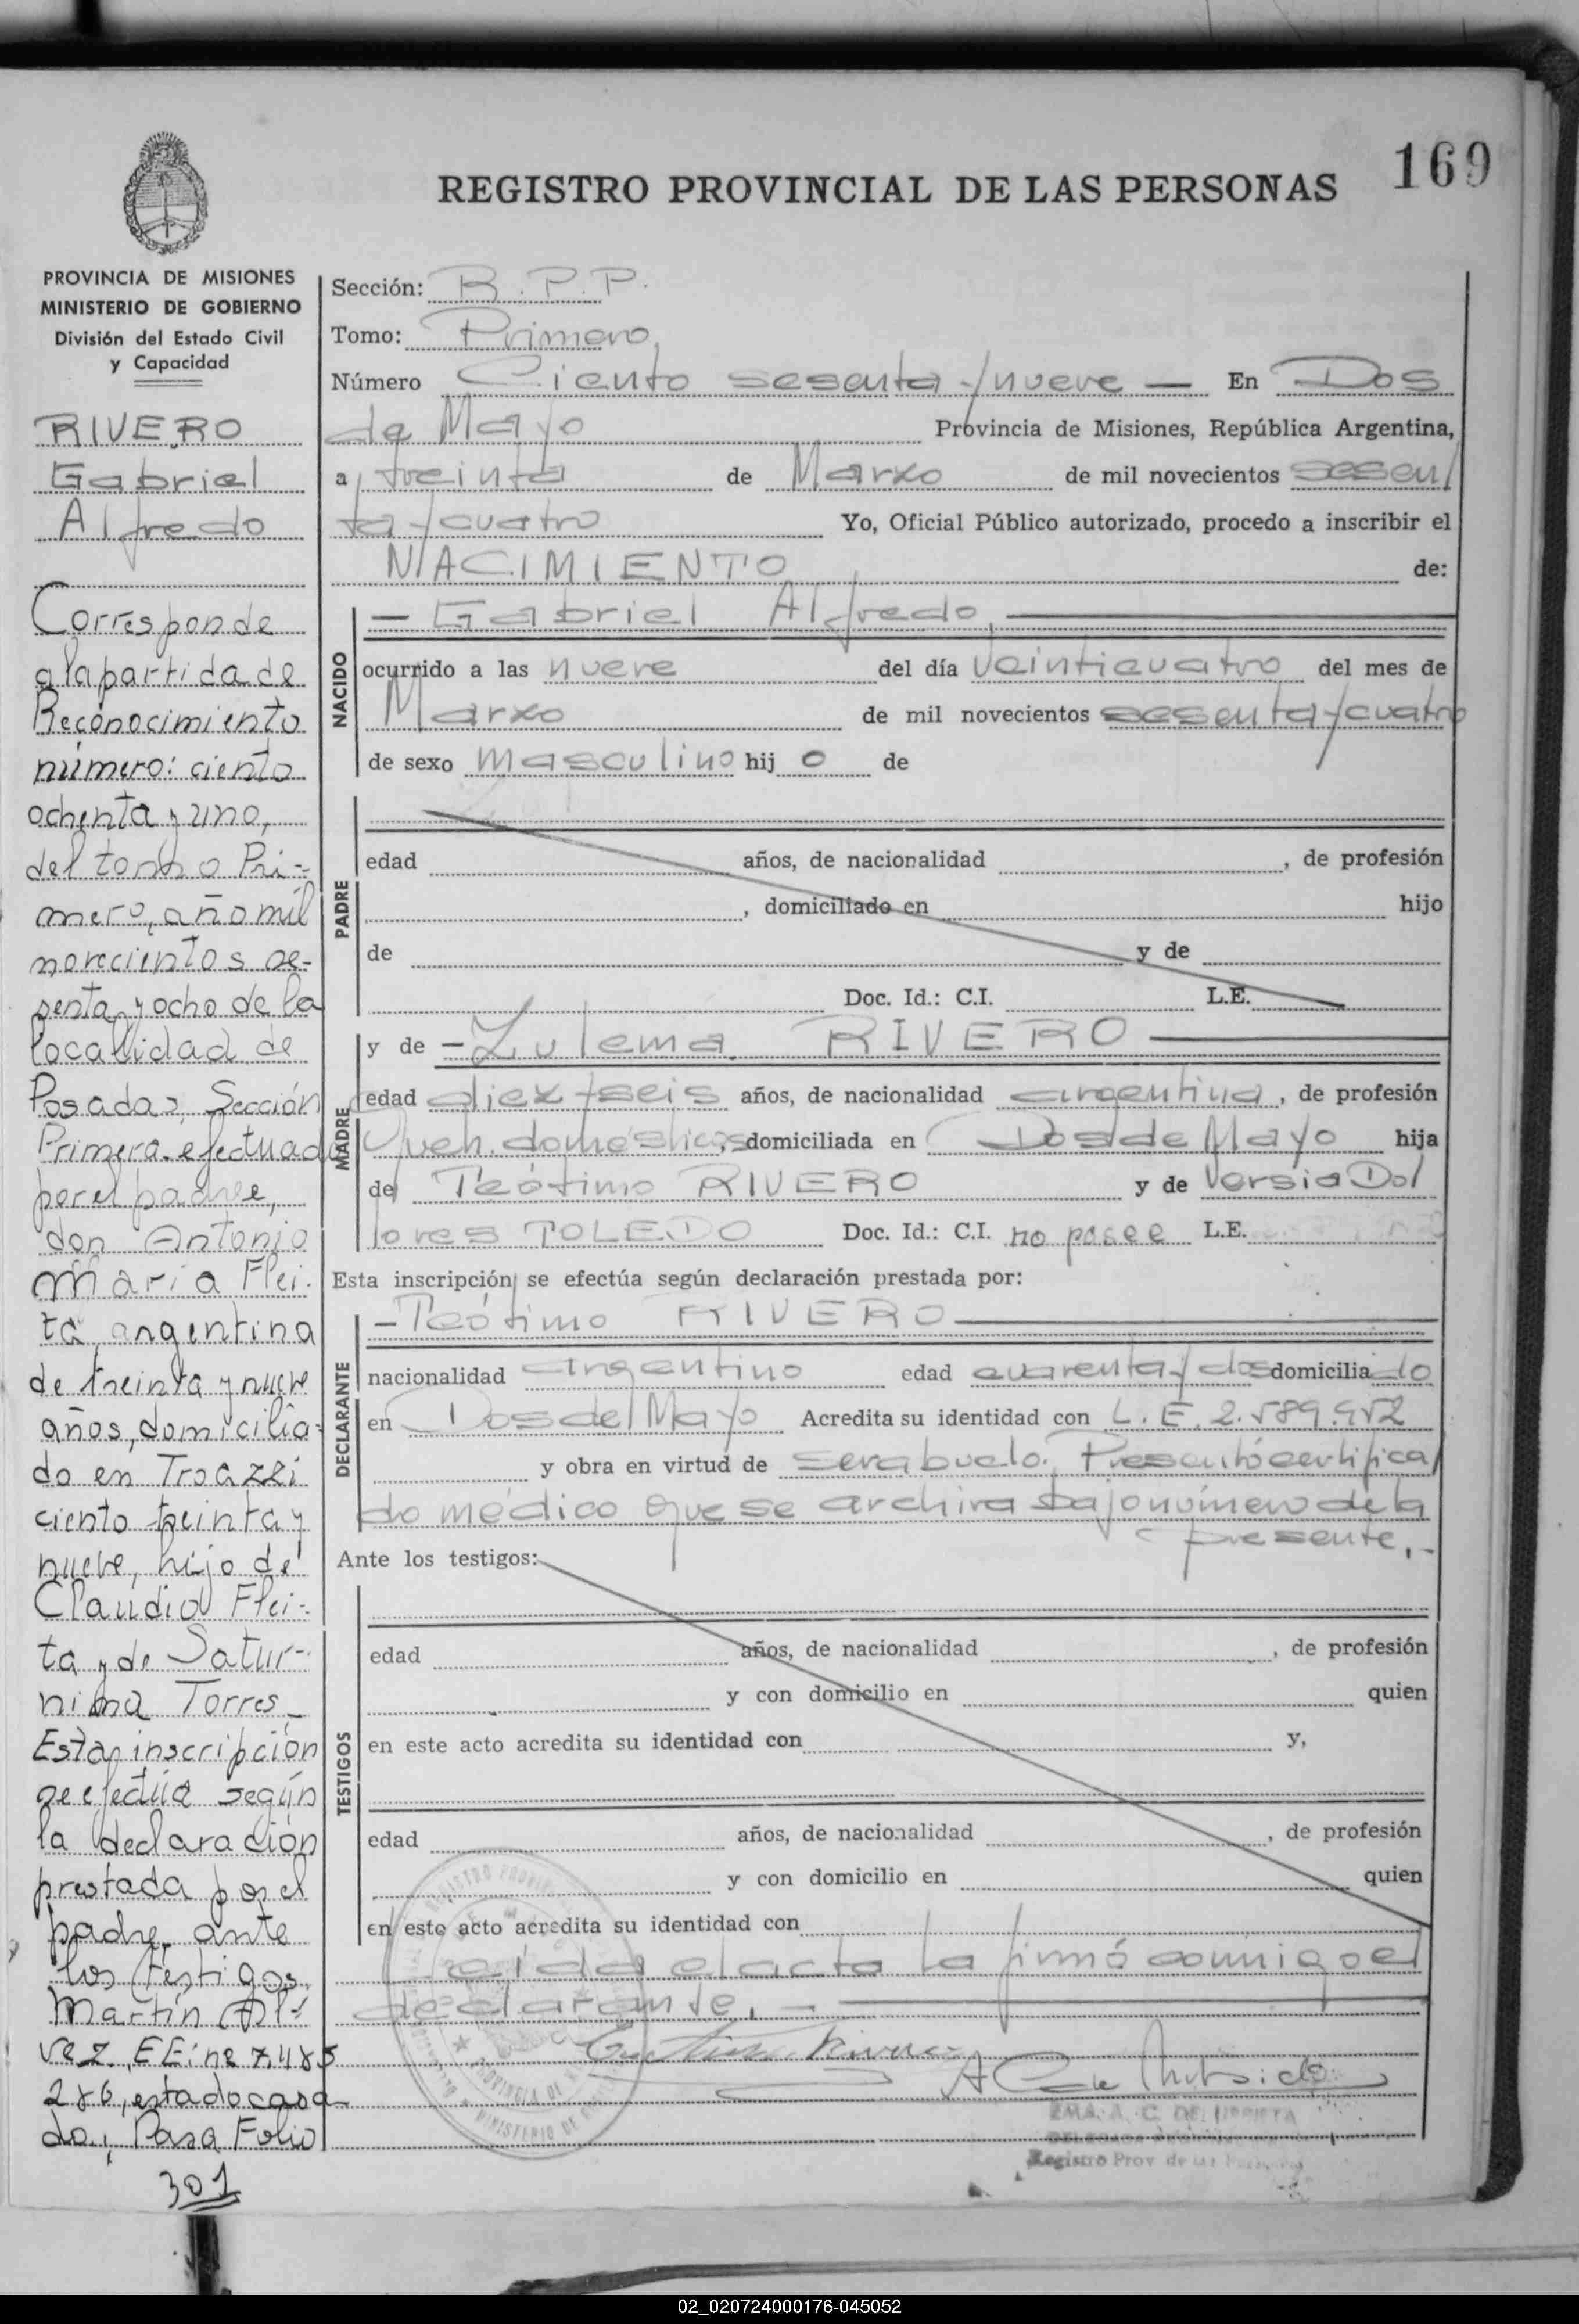 169
REGISTRO PROVINCIAL DE LAS PERSONAS
PROVINCIA DE MISIONES
MINISTERIO DE GOBIERNO
División del Estado Civil
y Capacidad
RIVERO
Gabriel
Alfredo
Corresponde
a la partida de
Reconocimiento
número: ciento
ochenta y uno,
del tomo Pri-
mero, año mil
novecientos se-
senta y ocho de la
localidad de
Posadas, Sección
Primera efectuada
por el padre,
don Antonio
Maria Flei-
ta, argentina
de treinta y nueve
años, domicilia-
do en Troazzi
ciento treinta y
nueve, hijo de
Claudio Flei-
ta y de Satur-
nina Torres_
Esta inscripción
se efectúa según
la declaración
prestada por el
padre ante
los testigos,
Martín
vez
286, estado casa-
do., Pasa Folio
301
Sección: R.P.P.
Tomo: Primero,
Número Ciento sesenta y nueve — En Dos
de Mayo Provincia de Misiones, República Argentina,
a treinta de Marzo de mil novecientos sesen/
ta y cuatro Yo, Oficial Público autorizado, procedo a inscribir el
NACIMIENTO de:
NACIDO
— Gabriel Alfredo,
ocurrido a las nueve del día veinticuatro del mes de
Marzo de mil novecientos sesenta y cuatro
de sexo masculino hij o de
PADRE
edad años, de nacionalidad , de profesión
, domiciliado en hijo
de y de
Doc. Id.: C.I. L.E.
MADRE
y de - Zulema RIVERO
edad diez y seis años, de nacionalidad argentina, de profesión
Queh. domésticos, domiciliada en Dos de Mayo hija
de Teótimo RIVERO y de Versia Dol
lores TOLEDO Doc. Id.: C.I. no posee L.E.
Esta inscripción se efectúa según declaración prestada por:
DECLARANTE
- Teótimo RIVERO
nacionalidad argentino edad cuarenta y dos domicilia do
en Dos de Mayo Acredita su identidad con L.E. 2.589.952
y obra en virtud de ser abuelo. Presentó certifica/
do médico que se archiva bajo número de la
presente,.-
Ante los testigos:
TESTIGOS
edad años, de nacionalidad , de profesión
y con domicilio en quien
en este acto acredita su identidad con y,
edad años, de nacionalidad , de profesión
y con domicilio en quien
en este acto acredita su identidad con
Leída el acta la firmó conmigo el
declarante,.-
EMA. A. C. DE URRUTIA
Registro Prov. de las
02_020724000176-045052